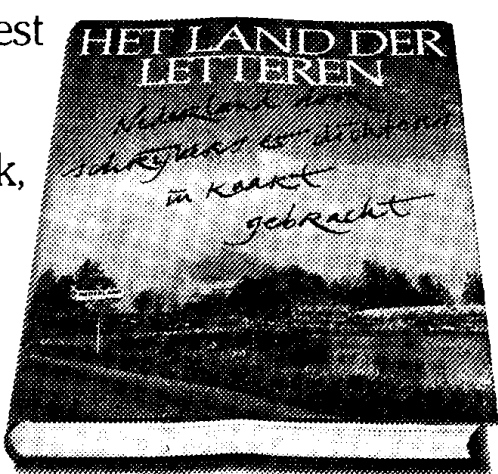 est
HET LAND DER
LETTEREN
Nederland door
schrijvers en dichters
k,
in kaart
gebracht